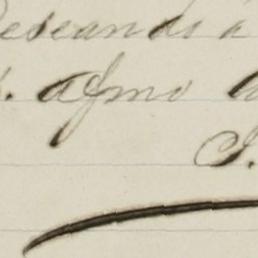 Deseando á
S. afmo
J.